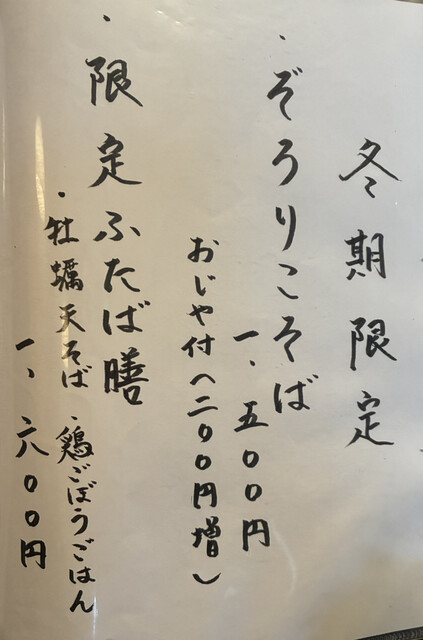 冬期限定
・ぞろりこそば
一、五〇〇円
おじや付(二〇〇円増し)
・限定ふたば膳
・牡蠣天そば ・鶏ごぼうごはん
一、六〇〇円